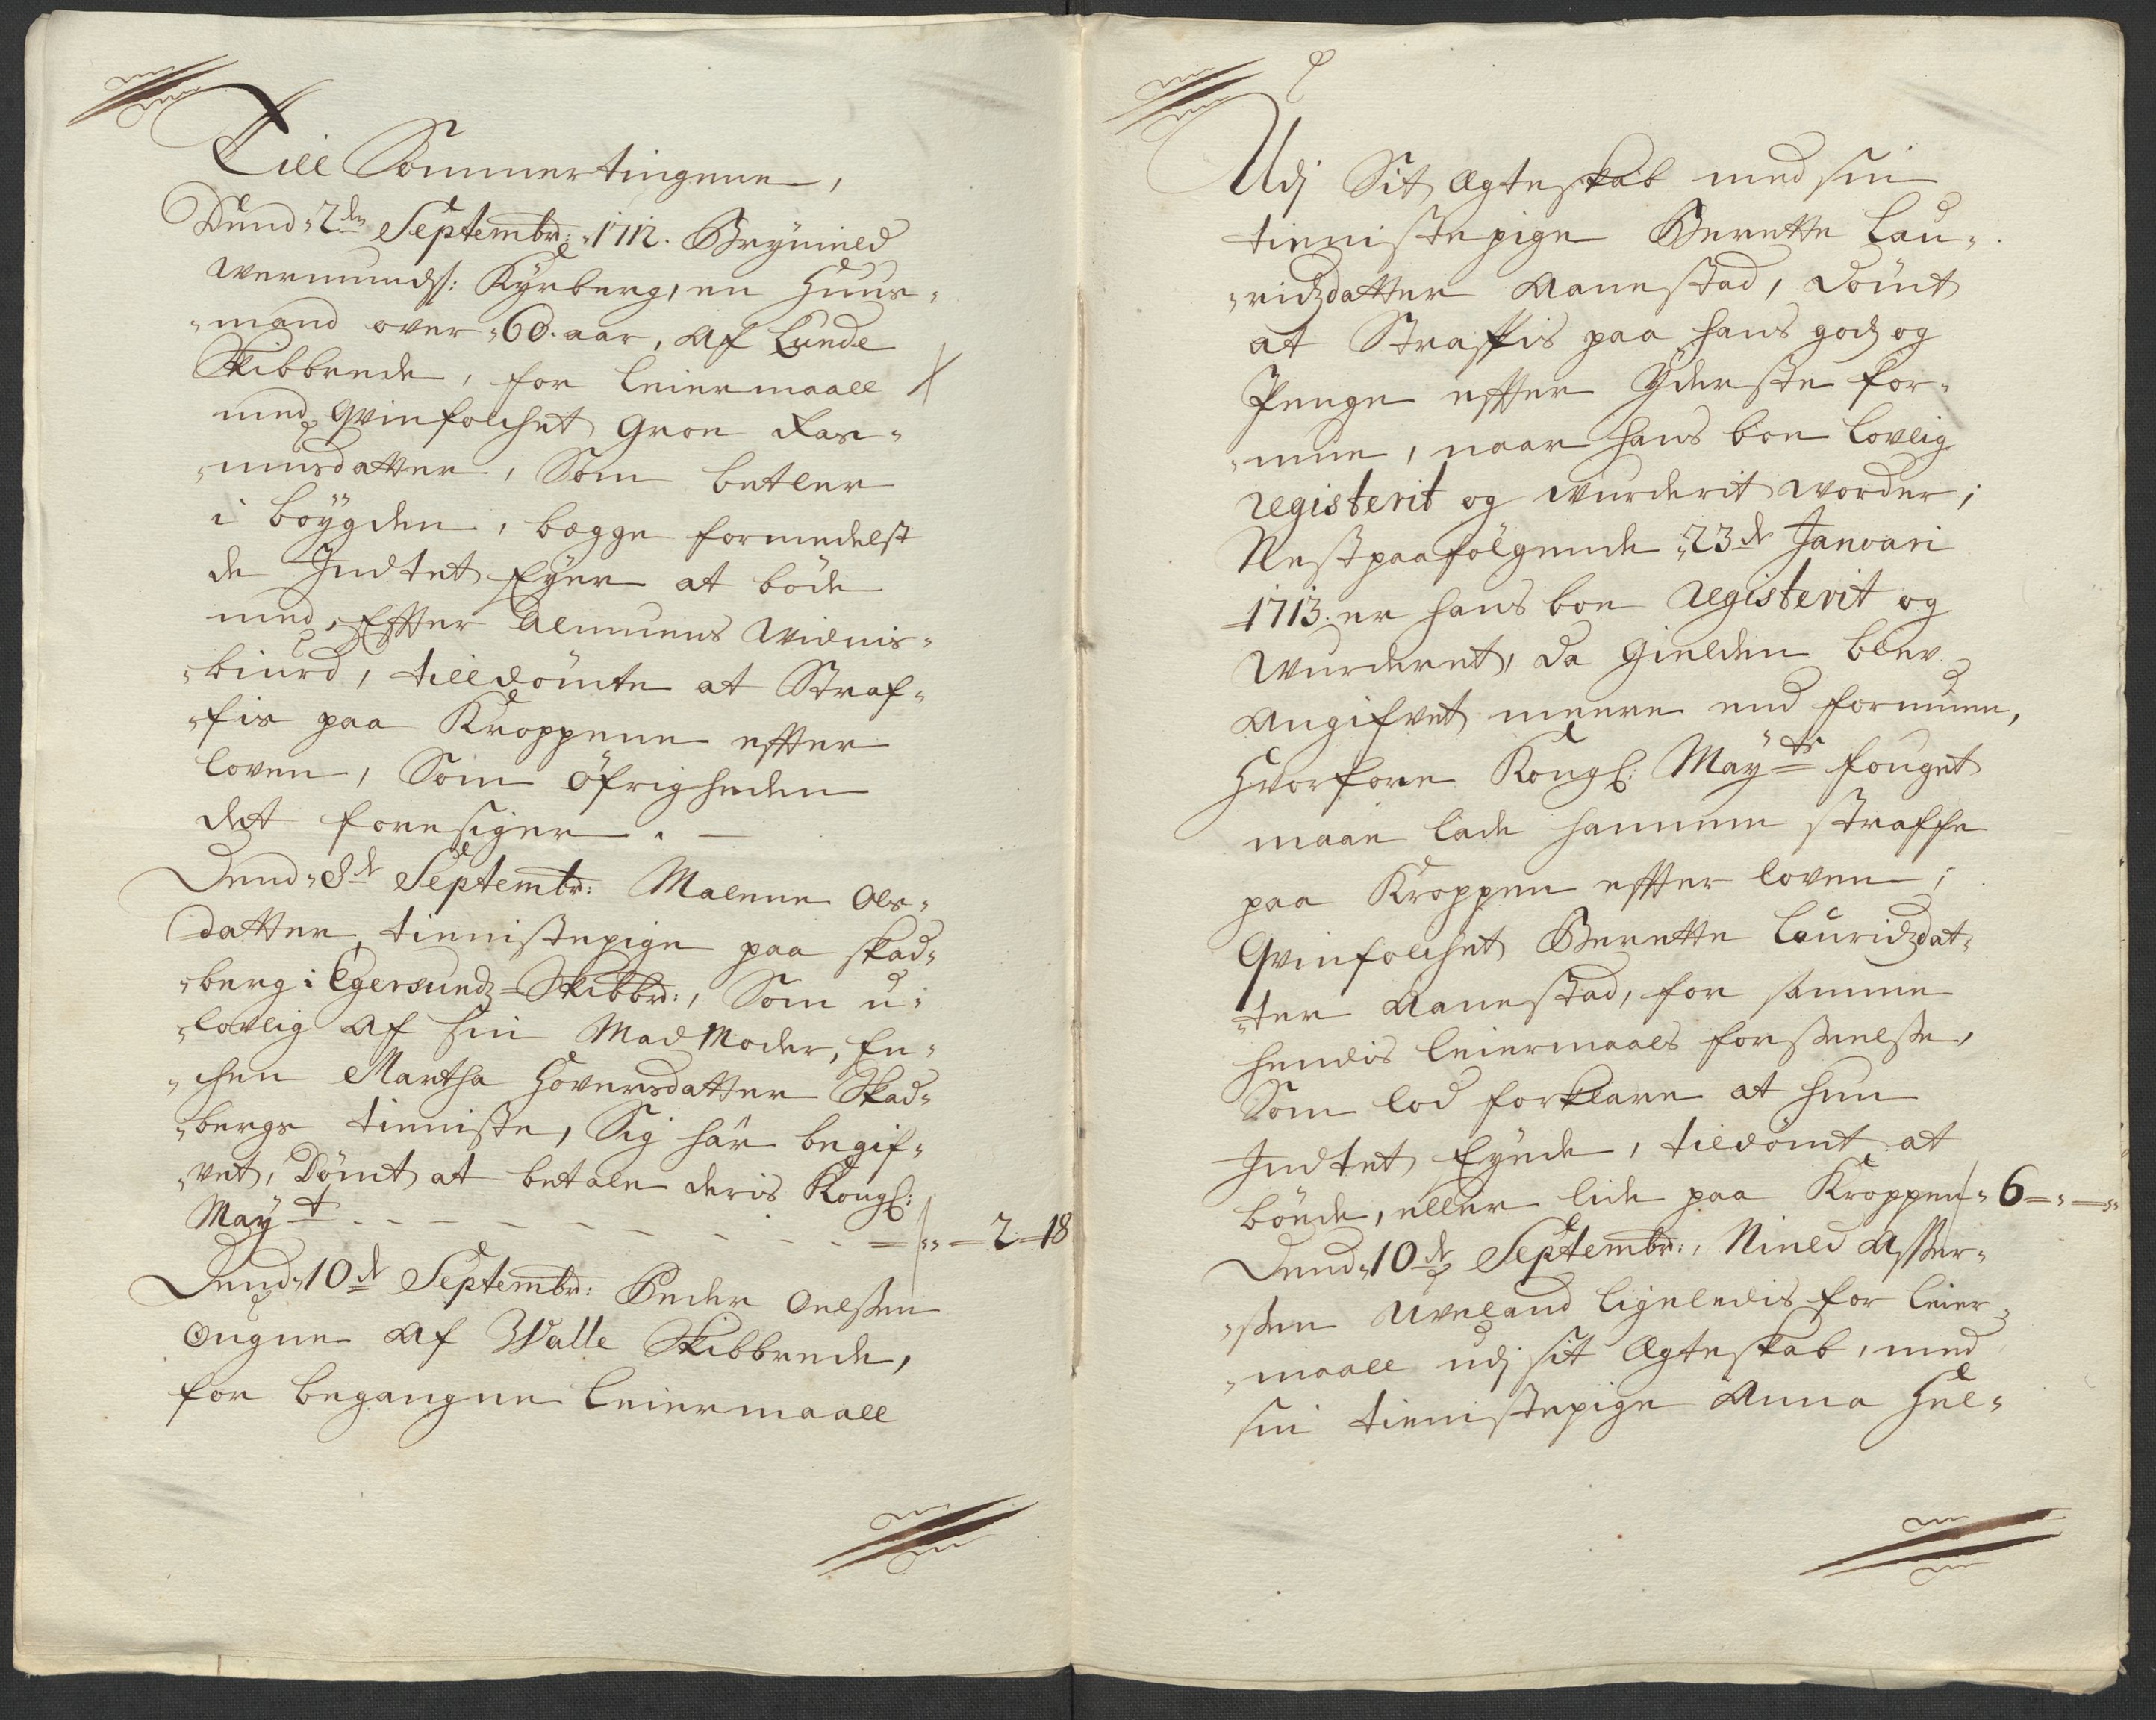 Till Sommertingene,
Dend 2den Septembr: 1712. Brÿnield
Wermunds: Kÿrberg, en Huus-
mand over 60. aar, Af Lunde
Skibbrede, for Leiermaall
med Qvinfolchet Groe Ras-
musdatter, Som betler
i böÿgden, begge formedelst
de Indtet Eÿer at böde
med, Effter Almuens Widnis-
biurd, tilldömte at Straf-
fis paa Kroppene effter
loven, Som Öfrigheden
det foresiger. —
Dend 8de Septembr: Malene Ols-
datter, tienistepige paa Skad-
berg i Egersundz Skibbrd:, Som u-
lovlig Af sin Mad Moder, En-
chen Martha Hoversdatter Skad-
bergs tienniste, Sig har begif-
vet, Dömt at betale deris Kongl:
Maÿt - - - - - 2 - 18
Dend 10de Septembr: Peder Oelssen
Ougne Af Walle Skibbrede,
for begangne Leiermaall
Udj Sit Ægteskab med sin
tienistepige Berette Lau-
ridzdatter Aanestad, dömt
at Straffis paa hans godz og
Penge effter Ÿderste for-
mue, naar hans boe lovlig
registerit og wurderit worder;
Nestpaafölgende 23de Januari
1713. er hans boe Registerit og
Wurderet, da Gielden blev
Angifvet meere end formuen,
Hvorfore Kongl: Maÿts fouget
maae lade hannem straffe
paa Kroppen effter loven;
Qvinfolchet Berette Lauridzdat-
ter Aanestad, for samme
hendis Leiermaals forseelse,
Som lod forklare at hun
Indtet Eÿede, tildömt at
böede, eller lide paa Kroppen 6 - -
Dend 10de Septembr:, Nield Asser-
sen Uveland ligeledis for Leier-
maall udj sit Ægteskab, med
sin tienistepige Anna Hel-